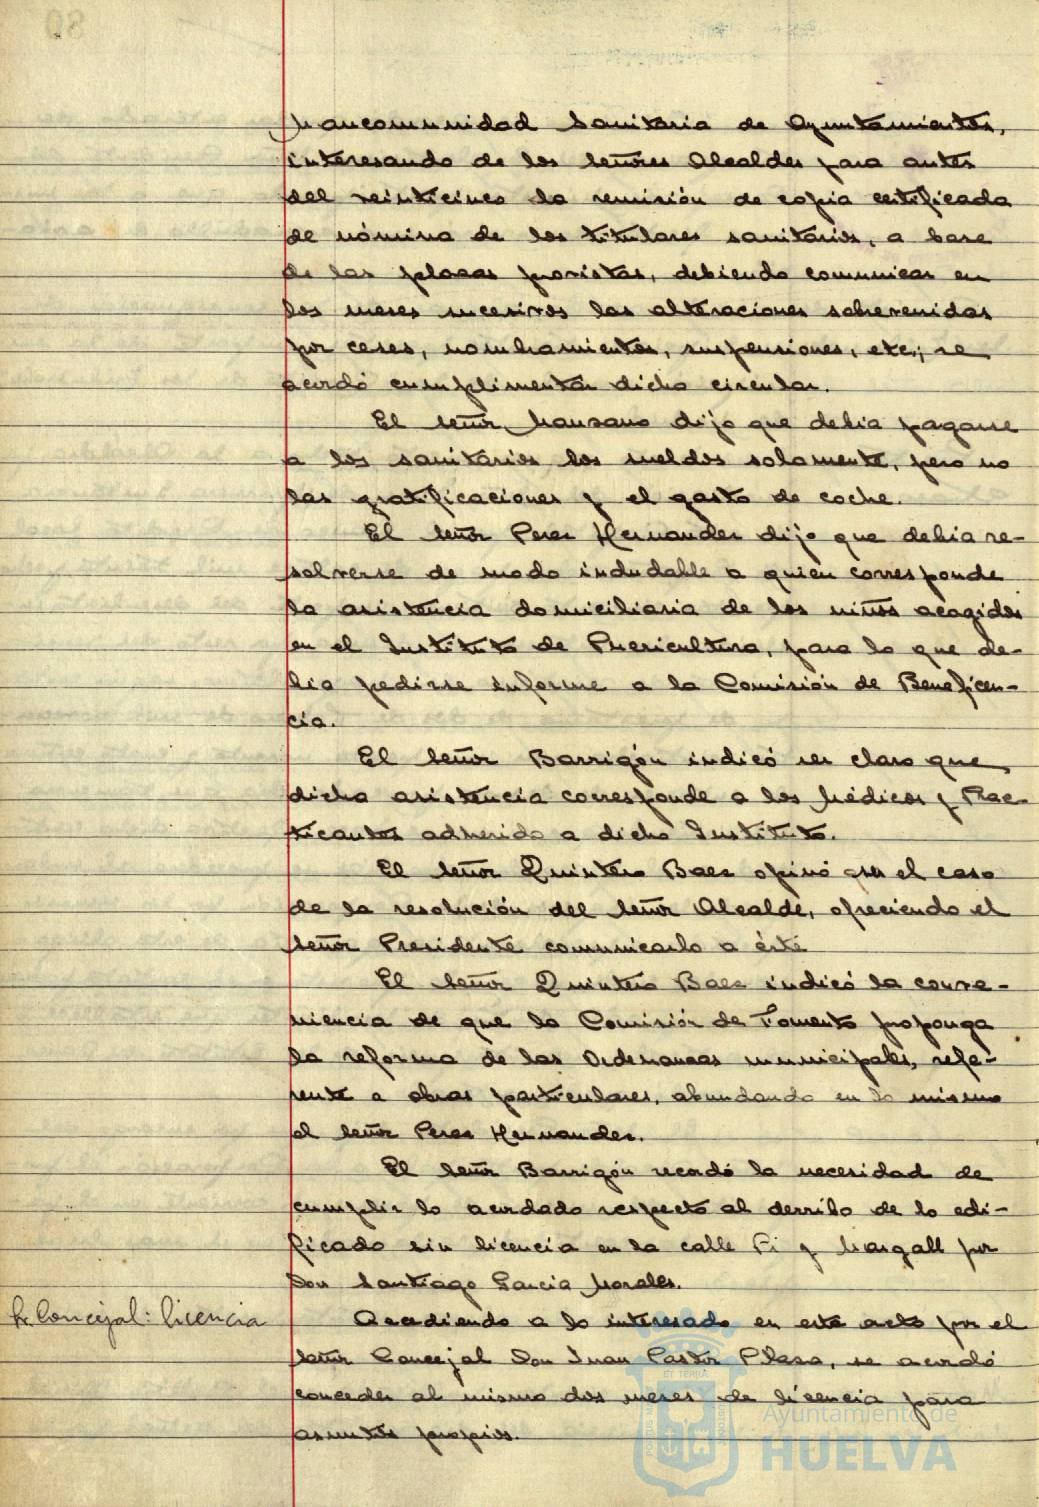 Mancomunidad Sanitaria de Ayuntamientos,
interesando de los señores Alcaldes para antes
del veinticinco la remisión de copia certificada
de nómina de los titulares sanitarios, a base
de las plazas provistas, debiendo comunicar en
los meses sucesivos las alteraciones sobrevenidas
por ceses, nombramientos, suspensiones, etc.; se
acordó cumplimentar dicha circular.
El señor Manzano dijo que debia pagarse
a los sanitarios los sueldos solamente, pero no
las gratificaciones y el gasto de coche.
El señor Perez Hernandez dijo que debia re-
solverse de modo indudable a quien corresponde
la asistencia domiciliaria de los niños acogidos
en el Instituto de Puericultura, para lo que de-
bia pedirse informe a la Comisión de Beneficen-
cia.
El señor Barrigón indicó ser claro que
dicha asistencia corresponde a los Médicos y Prac-
ticantes adherido a dicho Instituto.
El señor Quintero Baez opinó era el caso
de la resolución del señor Alcalde, ofreciendo el
señor Presidente comunicarlo a éste
El señor Quintero Baez indicó la conve-
niencia de que la Comisión de Fomento proponga
la reforma de las Ordenanzas municipales, refe-
rente a obras particulares, abundando en lo mismo
el señor Perez Hernandez.
El señor Barrigón recordó la necesidad de
cumplir lo acordado respecto al derribo de lo edi-
ficado sin licencia en la calle Pi y Margall por
Don Santiago Garcia Morales.
Sr. Concejal: licencia
Accediendo a lo interesado en este acto por el
señor Concejal Don Juan Pastor Plaza, se acordó
conceder al mismo dos meses de licencia para
asuntos propios.
Ayuntamiento de
HUELVA